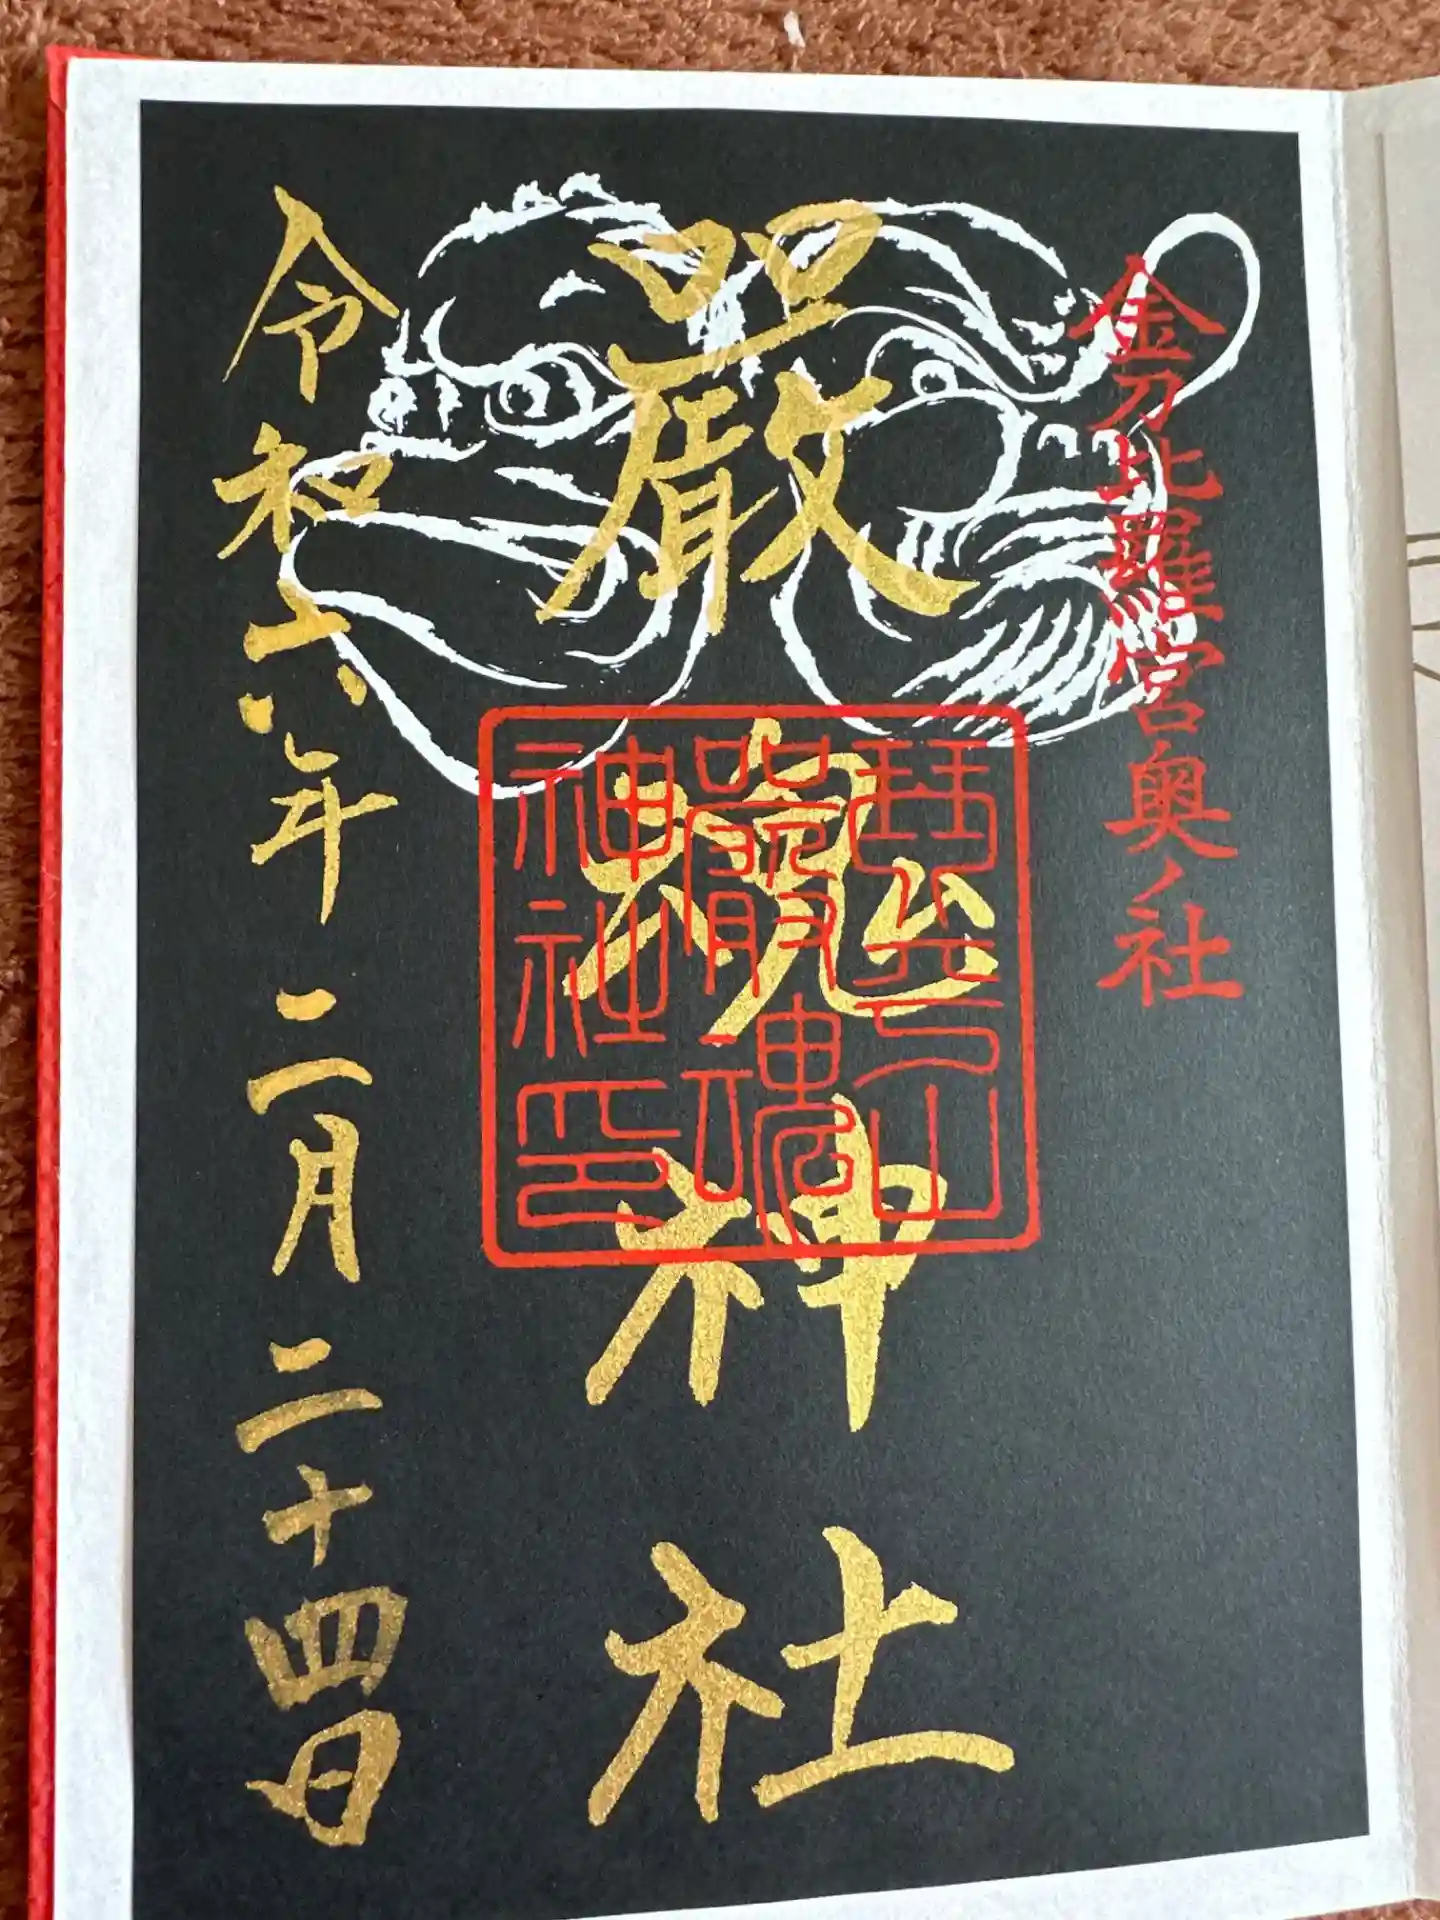 金刀比羅宮奥ノ社
嚴魂神社
琴平山
嚴魂
神社印
令和六年二月二十四日